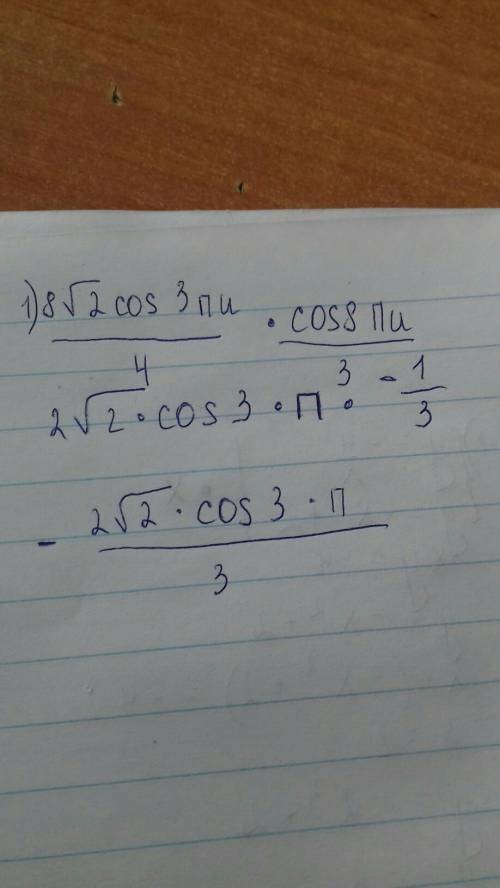 1) 8√2 cos 3пи · cos8 Пи
4 3
2√2 · cos 3 · П · - 1/3
- 2√2 · cos 3 · п
3